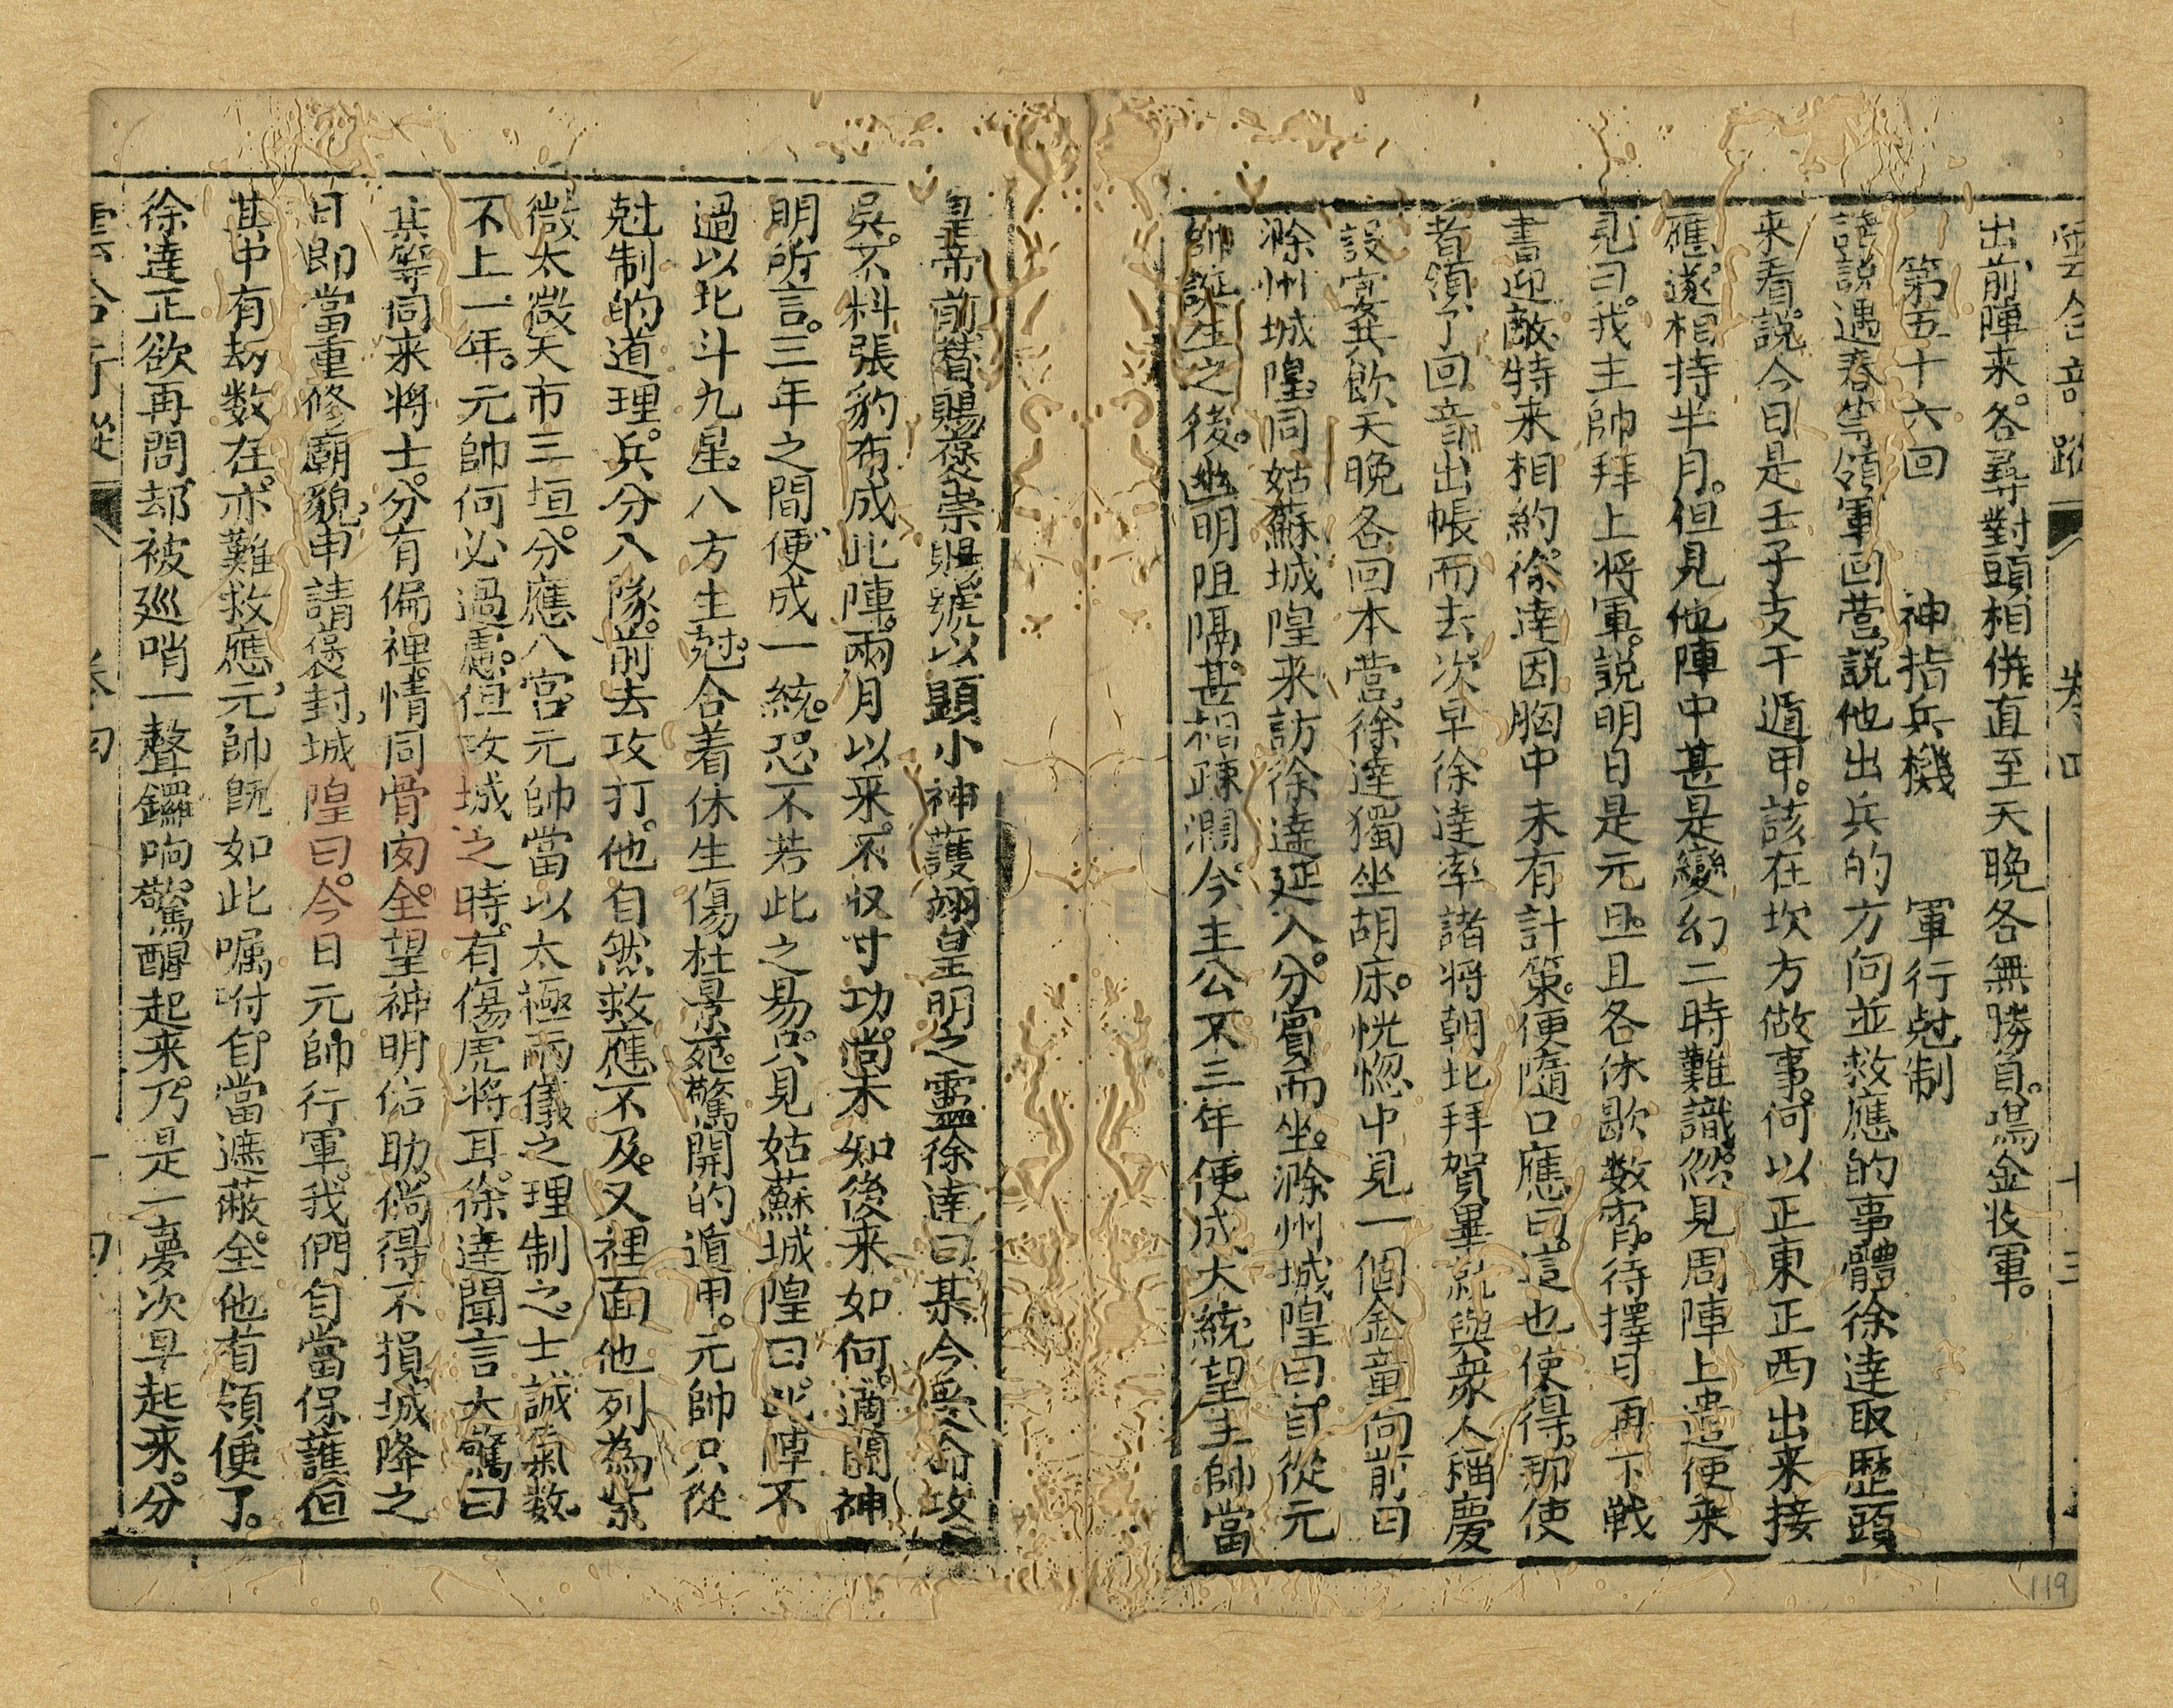 雲合竒蹤 卷四 十三
出前陣来。各尋對頭相併。直至天晚各無勝負。鳴金收軍。
第五十六回 神指兵機 軍行尅制
話說遇春等領軍回營。說他出兵的方向並救應的事體徐達取歷頭
来看。說今日是壬子支干遁甲。該在坎方做事。何以正東正西出来接
應。遂相持半月。但見他陣中甚是變幻二時難識。忽見周陣上遣使来
見曰。我主帥拜上將軍。說明日是元旦。且各休歇数宵。待擇日再下戦
書迎敵。特来相約。徐達因胸中未有計策。便隨口應曰。這也使得。那使
者領了回音。出帳而去。次早徐達率諸將朝北拜賀畢。就與衆人稱慶
設宴共飲。天晚各回本營。徐達獨坐胡床。恍惚中見一個金童向前曰
滁州城隍。同姑蘇城隍来訪。徐達延入。分賓而坐。滁州城隍曰。自從元
帥誕生之後。幽明阻隔。甚相疎濶。今主公不三年便成大統。望主帥當
皇帝前替賜褒崇賜號以顯小神護翊皇明之靈徐達曰某今受命攻
吳。不料張豹布成此陣。兩月以来。不収寸功。尚未知後来如何。適聞神
明所言。三年之間。便成一統。恐不若此之易。只見姑蘇城隍曰。此陣不
過以北斗九星。八方生尅。合着休生傷杜景死驚開的遁甲。元帥只從
尅制的道理。兵分八隊。前去攻打。他自然救應不及。又裡面他列為紫
微太微天市三垣。分應八宮。元帥當以太極兩儀之理制之。士誠氣数
不上一年。元帥何必過慮。但攻城之時。有傷虎將耳。徐達聞言大驚曰
某等同来將士。分有偏裡。情同骨肉。全望神明佑助。倘得不損。城降之
日。即當重修廟貌。申請褒封。城隍曰。今日元帥行軍。我們自當保護。但
其中有劫数在。亦難救應。元帥旣如此囑咐。自當遮蔽。全他首領便了。
徐達正欲再問。却被巡哨一聲鑼响。驚醒起来。乃是一夢。次早起来。分
雲合竒蹤 卷四 十四
119